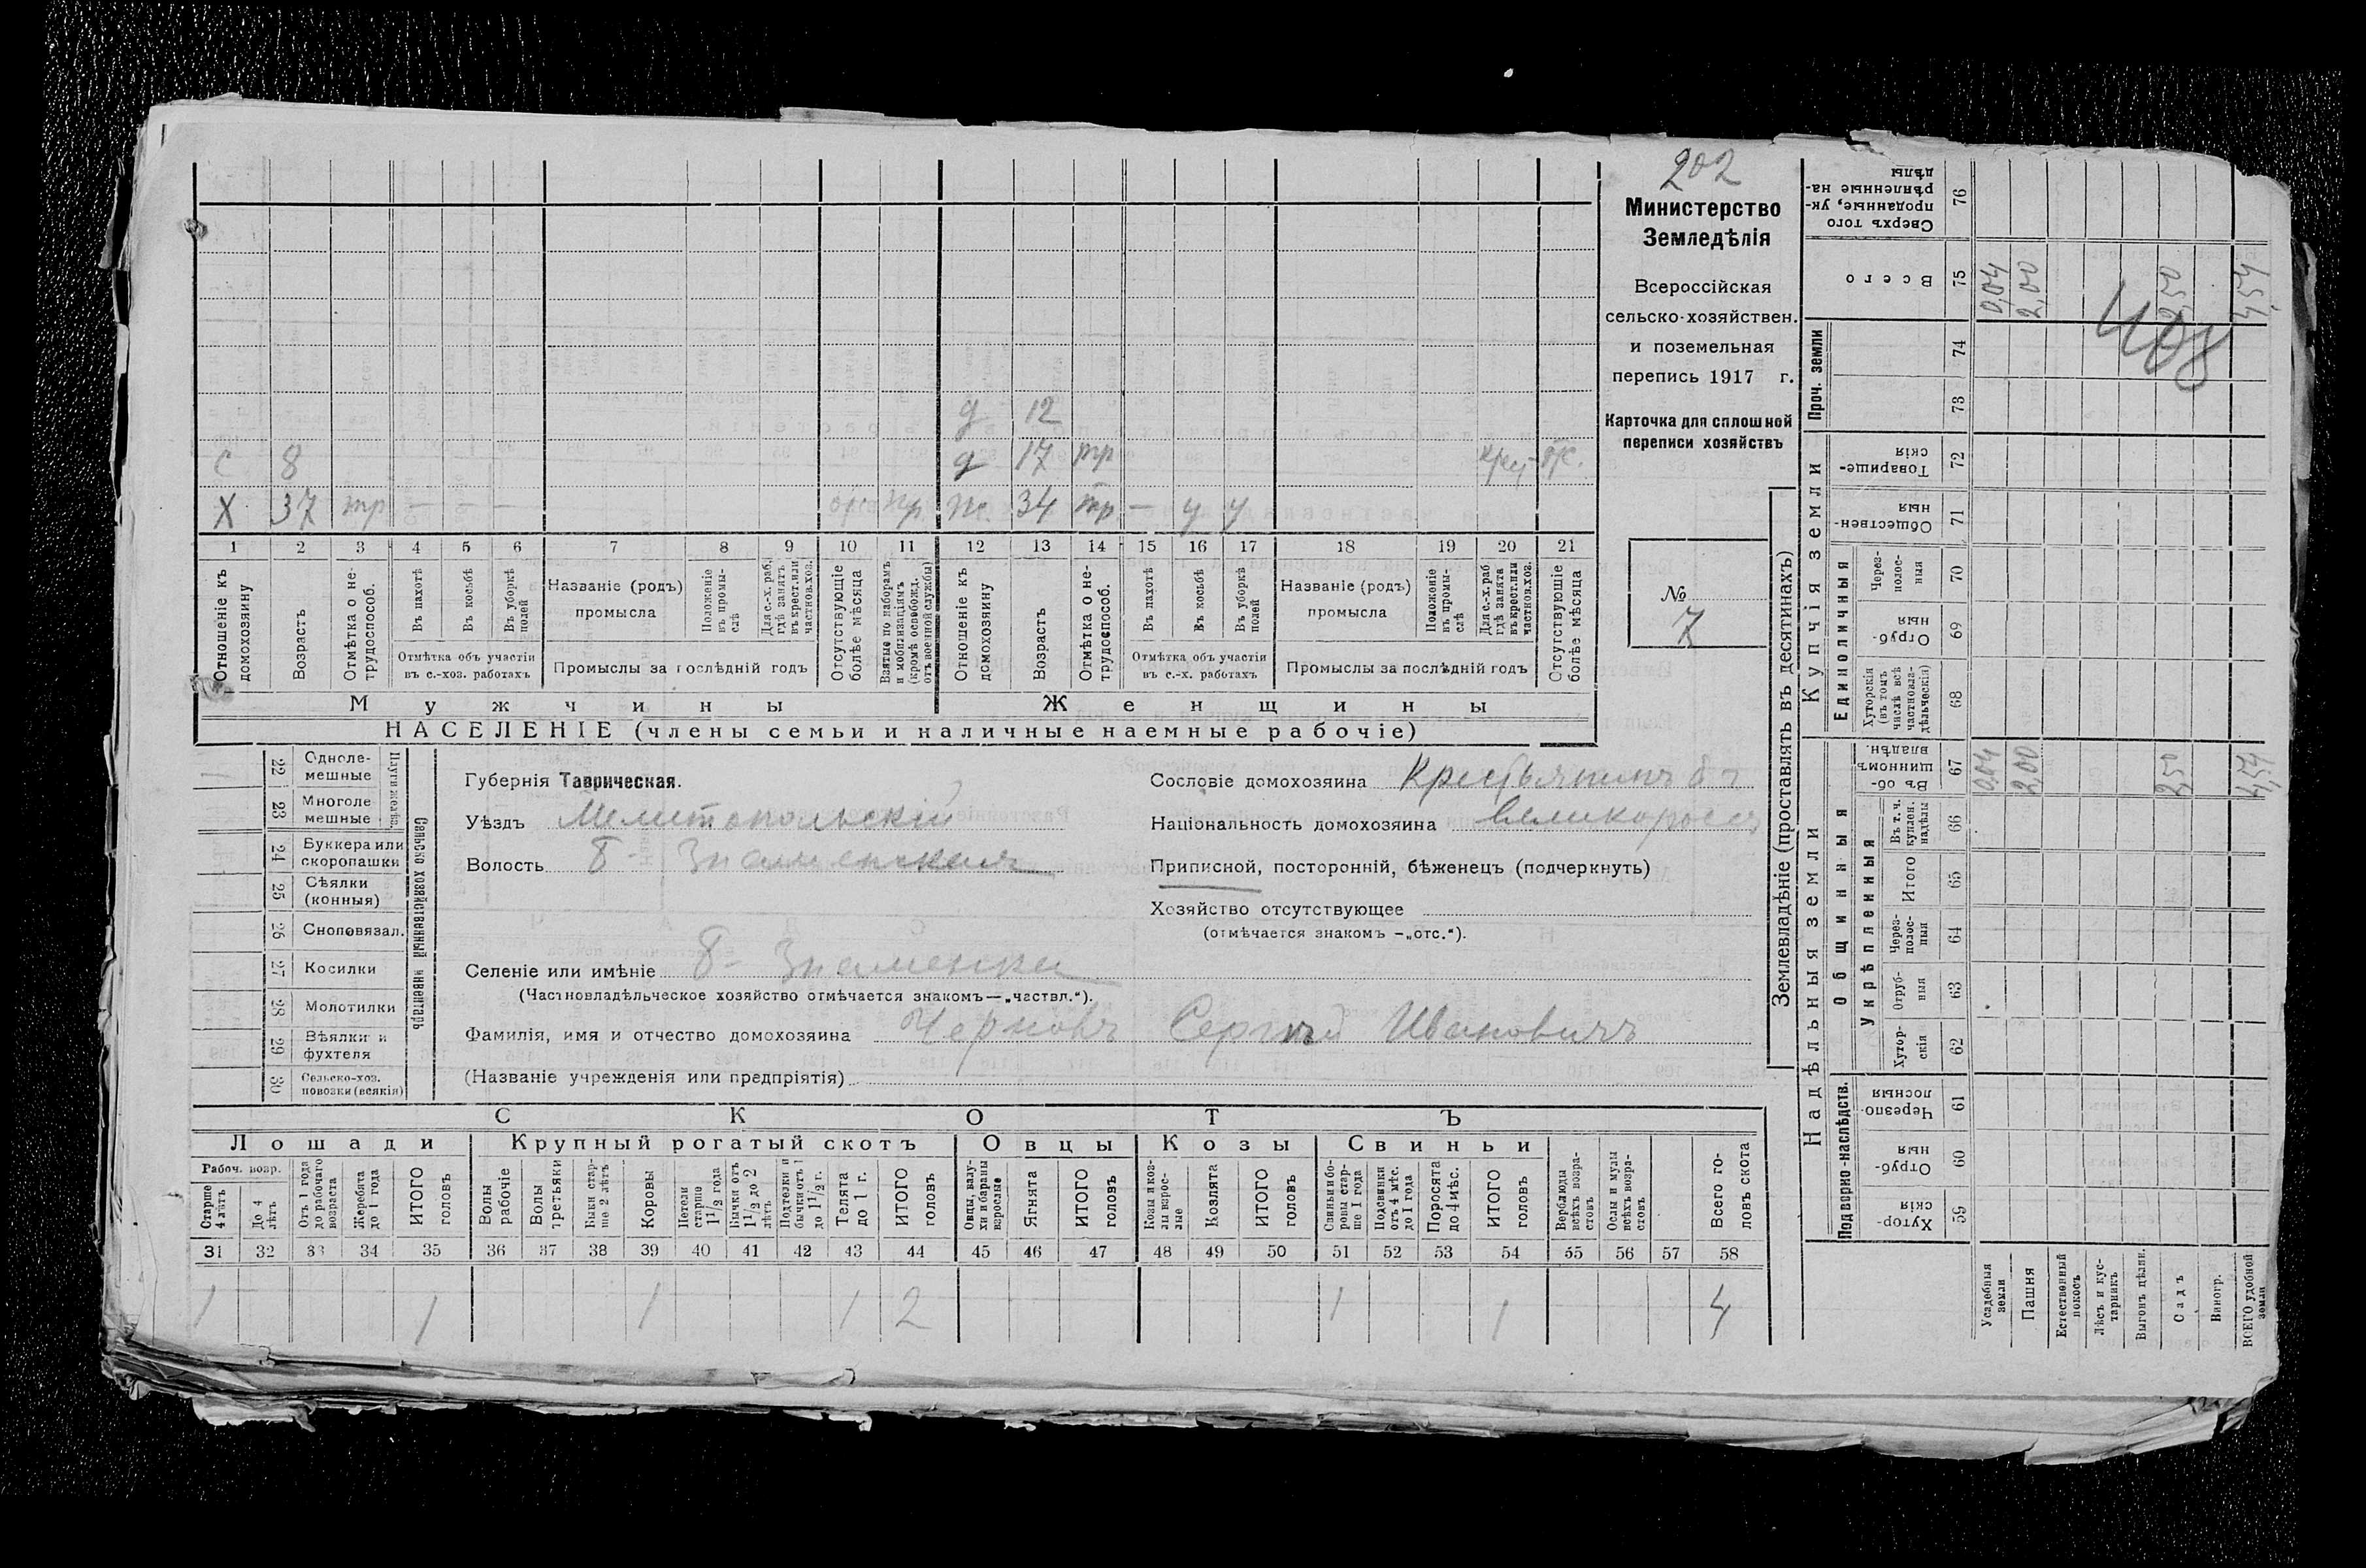 202
Министерство
Земледѣлія
Всероссійская
сельско-хозяйствен.
и поземельная
перепись 1917 г.
Карточка для сплошной
переписи хозяйствъ
№
7
408
д 12
С 8 д 17 тр
Х 37 тр — — — ж. 34 тр. — у у
1 2 3 4 5 6 7 8 9 10 11 12 13 14 15 16 17 18 19 20 21
Отношеніе къ домохозяину
Возрастъ
Отмѣтка о не-трудоспособ.
Въ пахотѣ
Въ косьбѣ
Въ уборкѣ полей
Отмѣтка объ участіи
въ с.-хоз. работахъ
Названіе (родъ)
промысла
Положеніе въ промы-слѣ
Для с.-х. раб. гдѣ занятъ въ крест. или частновл.хоз.
Промыслы за послѣдній годъ
Отсутствующіе болѣе мѣсяца
Взятые по наборамъ и мобилизаціямъ (кромѣ освобожд. отъ военной службы)
Отношеніе къ домохозяину
Возрастъ
Отмѣтка о не-трудоспособ.
Въ пахотѣ
Въ косьбѣ
Въ уборкѣ полей
Отмѣтка объ участіи
въ с.-х. работахъ
Названіе (родъ)
промысла
Положеніе въ промы-слѣ
Для с.-х. раб гдѣ занята въ крест.или частнов.хоз.
Промыслы за послѣдній годъ
Отсутствующіе болѣе мѣсяца
Мужчины Женщины
НАСЕЛЕНІЕ (члены семьи и наличные наемные рабочіе)
Сельско хозяйственный инвентарь
Плуги желѣз.
22 Одноле-мешные 1
23 Многоле мешные
24 Буккера или скоропашки
25 Сѣялки (конныя)
26 Сноповязал.
27 Косилки
28 Молотилки
29 Вѣялки и фухтеля
30 Сельско-хоз. повозки (всякія)
Губернія Таврическая.
Уѣздъ Мелитопольскій
Волость Б- Знаменская
Селеніе или имѣніе Б- Знаменка
(Частновладѣльческое хозяйство отмѣчается знакомъ—„частвл.“).
Фамилія, имя и отчество домохозяина Черновъ Сергѣй Ивановичъ
(Названіе учрежденія или предпріятія)
Сословіе домохозяина Крестьянинъ
Національность домохозяина великороссъ
Приписной, посторонній, бѣженецъ (подчеркнуть)
Хозяйство отсутствующее
(отмѣчается знакомъ —„отс.“).
СКОТЪ
Лошади Крупный рогатый скотъ Овцы Козы Свиньи
Рабоч. возр.
Старше 4 лѣтъ
До 4 лѣтъ
Отъ 1 года до рабочаго возраста
Жеребята до 1 года
ИТОГО головъ
Волы рабочіе
Волы третьяки
Быки стар-ше 2 лѣтъ
Коровы
Нетели старше 1½ года
Бычки отъ 1½ до 2 лѣтъ
Подтелки и бычки отъ 1 до 1½ г.
Телята до 1 г.
ИТОГО головъ
Овцы, валу-хи и бараны взрослые
Ягнята
ИТОГО головъ
Козы и коз-лы взрос-лые
Козлята
ИТОГО головъ
Свиньи и бо-ровы стар-ше 1 года
Подсвинки отъ 4 мѣс. до 1 года
Поросята до 4 мѣс.
ИТОГО головъ
Верблюды всѣхъ возра-стовъ
Ослы и мулы всѣхъ возра-стовъ
Всего го-ловъ скота
31 32 33 34 35 36 37 38 39 40 41 42 43 44 45 46 47 48 49 50 51 52 53 54 55 56 57 58
1 1 1 1 2 1 1 4
Землевладѣніе (проставлять въ десятинахъ)
Надѣльныя земли
Купчія земли
Проч. земли
Подворно-наслѣдств.
Общинныя
Укрѣпленныя
Единоличныя
Сверхъ того проданные, ук-рѣпленные на-дѣлы 76
Всего 75 0,04 2,00 2,50 4,54
74
73
Товарище-скія 72
Обществен-ныя 71
Через-полос-ныя 70
Отруб-ныя 69
Хуторскія (въ томъ числѣ всѣ частновла-дѣльческія) 68
Въ об-щинномъ владѣн. 67 0,04 2,00 2,50 4,54
Въ т. ч. куплен. надѣлы 66
Итого 65
Через-полос-ныя 64
Отруб-ныя 63
Хутор-скія 62
Черезпо-лосныя 61
Отруб-ныя 60
Хутор-скія 59
Усадебныя земли
Пашня
Естественный покосъ
Лѣсъ и кус-тарникъ
Выгонъ цѣлин.
Садъ
Виногр.
ВСЕГО удобной земли